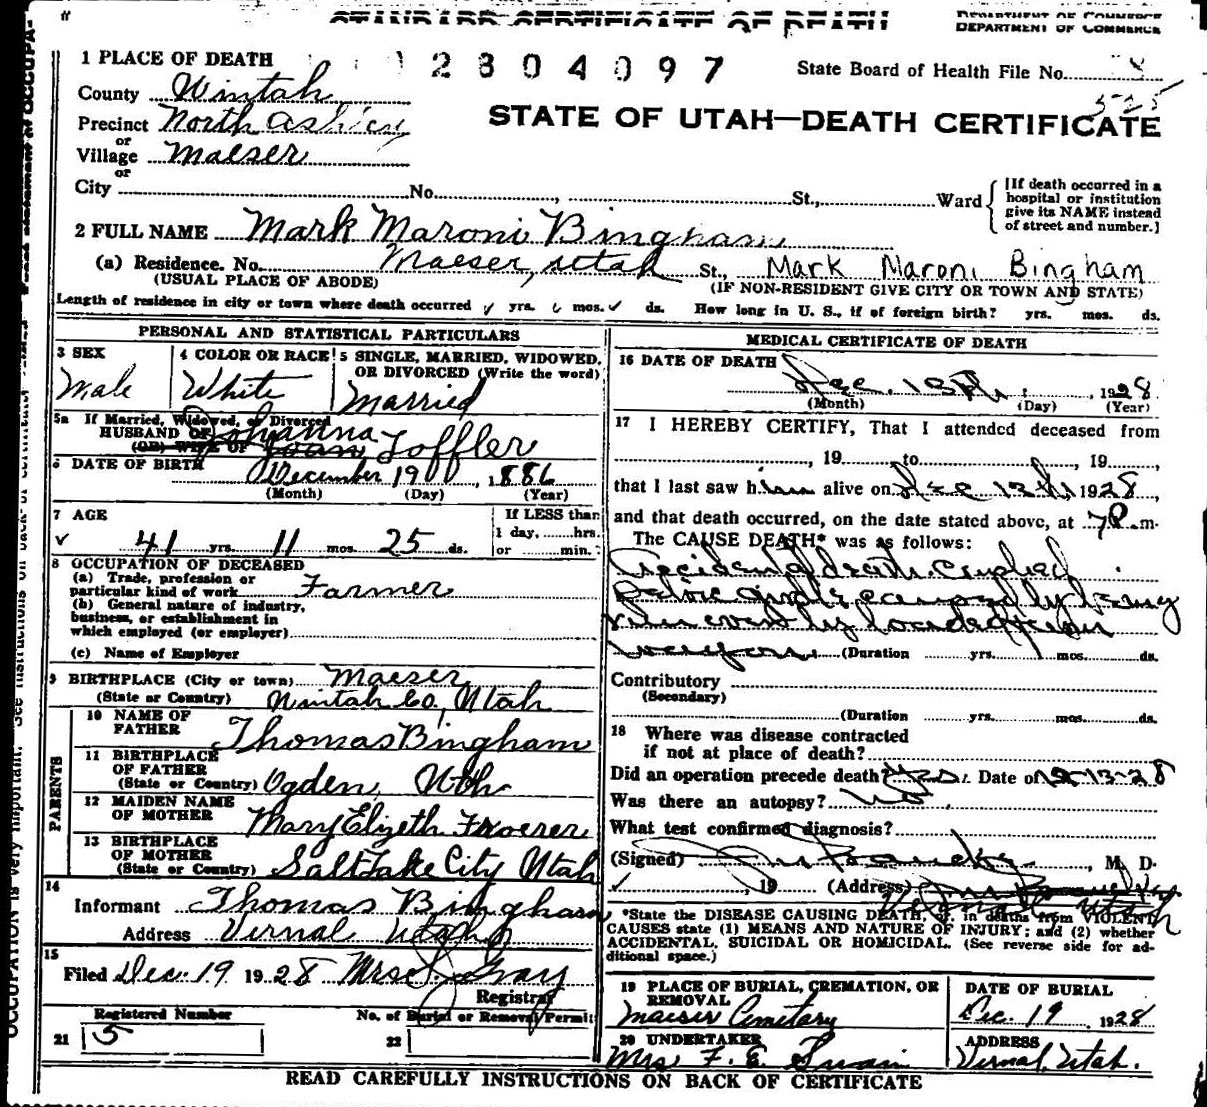 STANDARD CERTIFICATE OF DEATH
DEPARTMENT OF COMMERCE
DEPARTMENT OF COMMERCE
1 PLACE OF DEATH
2804097
State Board of Health File No.
County Uintah
STATE OF UTAH—DEATH CERTIFICATE
Precinct North Ashley
or
Village Maeser
or
City No. St., Ward
[If death occurred in a
hospital or institution
give its NAME instead
of street and number.]
2 FULL NAME Mark Maroni Bingham
(a) Residence. No. Maeser, Utah St., Mark Maroni Bingham
(USUAL PLACE OF ABODE) (IF NON-RESIDENT GIVE CITY OR TOWN AND STATE)
Length of residence in city or town where death occurred yrs. mos. ds. How long in U. S., if of foreign birth? yrs. mos. ds.
PERSONAL AND STATISTICAL PARTICULARS
3 SEX
Male
4 COLOR OR RACE
White
5 SINGLE, MARRIED, WIDOWED,
OR DIVORCED (Write the word)
Married
5a If Married, Widowed, or Divorced
HUSBAND OF Johanna Loffler
(OR) WIFE OF
6 DATE OF BIRTH December 19 1886
(Month) (Day) (Year)
7 AGE
41 yrs. 11 mos. 25 ds.
If LESS than
1 day, hrs.
or min.
8 OCCUPATION OF DECEASED
(a) Trade, profession or
particular kind of work Farmer
(b) General nature of industry,
business, or establishment in
which employed (or employer)
(c) Name of Employer
9 BIRTHPLACE (City or town) Maeser
(State or Country) Uintah Co, Utah
PARENTS
10 NAME OF
FATHER Thomas Bingham
11 BIRTHPLACE
OF FATHER
(State or Country) Ogden, Utah
12 MAIDEN NAME
OF MOTHER Mary Elizeth
13 BIRTHPLACE
OF MOTHER
(State or Country) Salt Lake City Utah
14
Informant Thomas Bingham
Address Vernal Utah
15
Filed Dec. 19 1928 Mrs. J. Gray
Registrar
Registered Number
No. of Burial or Removal Permit
21 5
22
MEDICAL CERTIFICATE OF DEATH
16 DATE OF DEATH
Dec. 13th, 1928
(Month) (Day) (Year)
17 I HEREBY CERTIFY, That I attended deceased from
, 19 to , 19 ,
that I last saw him alive on Dec 13th 1928,
and that death occurred, on the date stated above, at 7P.m.
The CAUSE DEATH* was as follows:
Accidental death. Crushed
Pelvic girdle caused by being
run over by loaded
wagon. (Duration yrs. mos. ds.
Contributory
(Secondary)
(Duration yrs. mos. ds.
18 Where was disease contracted
if not at place of death?
Did an operation precede death? Yes. Date of 12-13-28
Was there an autopsy? No
What test confirmed diagnosis?
(Signed) , M. D.
, 19 (Address)
Vernal Utah
*State the DISEASE CAUSING DEATH, or, in deaths from VIOLENT
CAUSES state (1) MEANS AND NATURE OF INJURY; and (2) whether
ACCIDENTAL, SUICIDAL OR HOMICIDAL. (See reverse side for ad-
ditional space.)
19 PLACE OF BURIAL, CREMATION, OR
REMOVAL
Maeser Cemetary
DATE OF BURIAL
Dec. 19 1928
20 UNDERTAKER
Mrs F. E. Swain
ADDRESS
Vernal, Utah.
READ CAREFULLY INSTRUCTIONS ON BACK OF CERTIFICATE